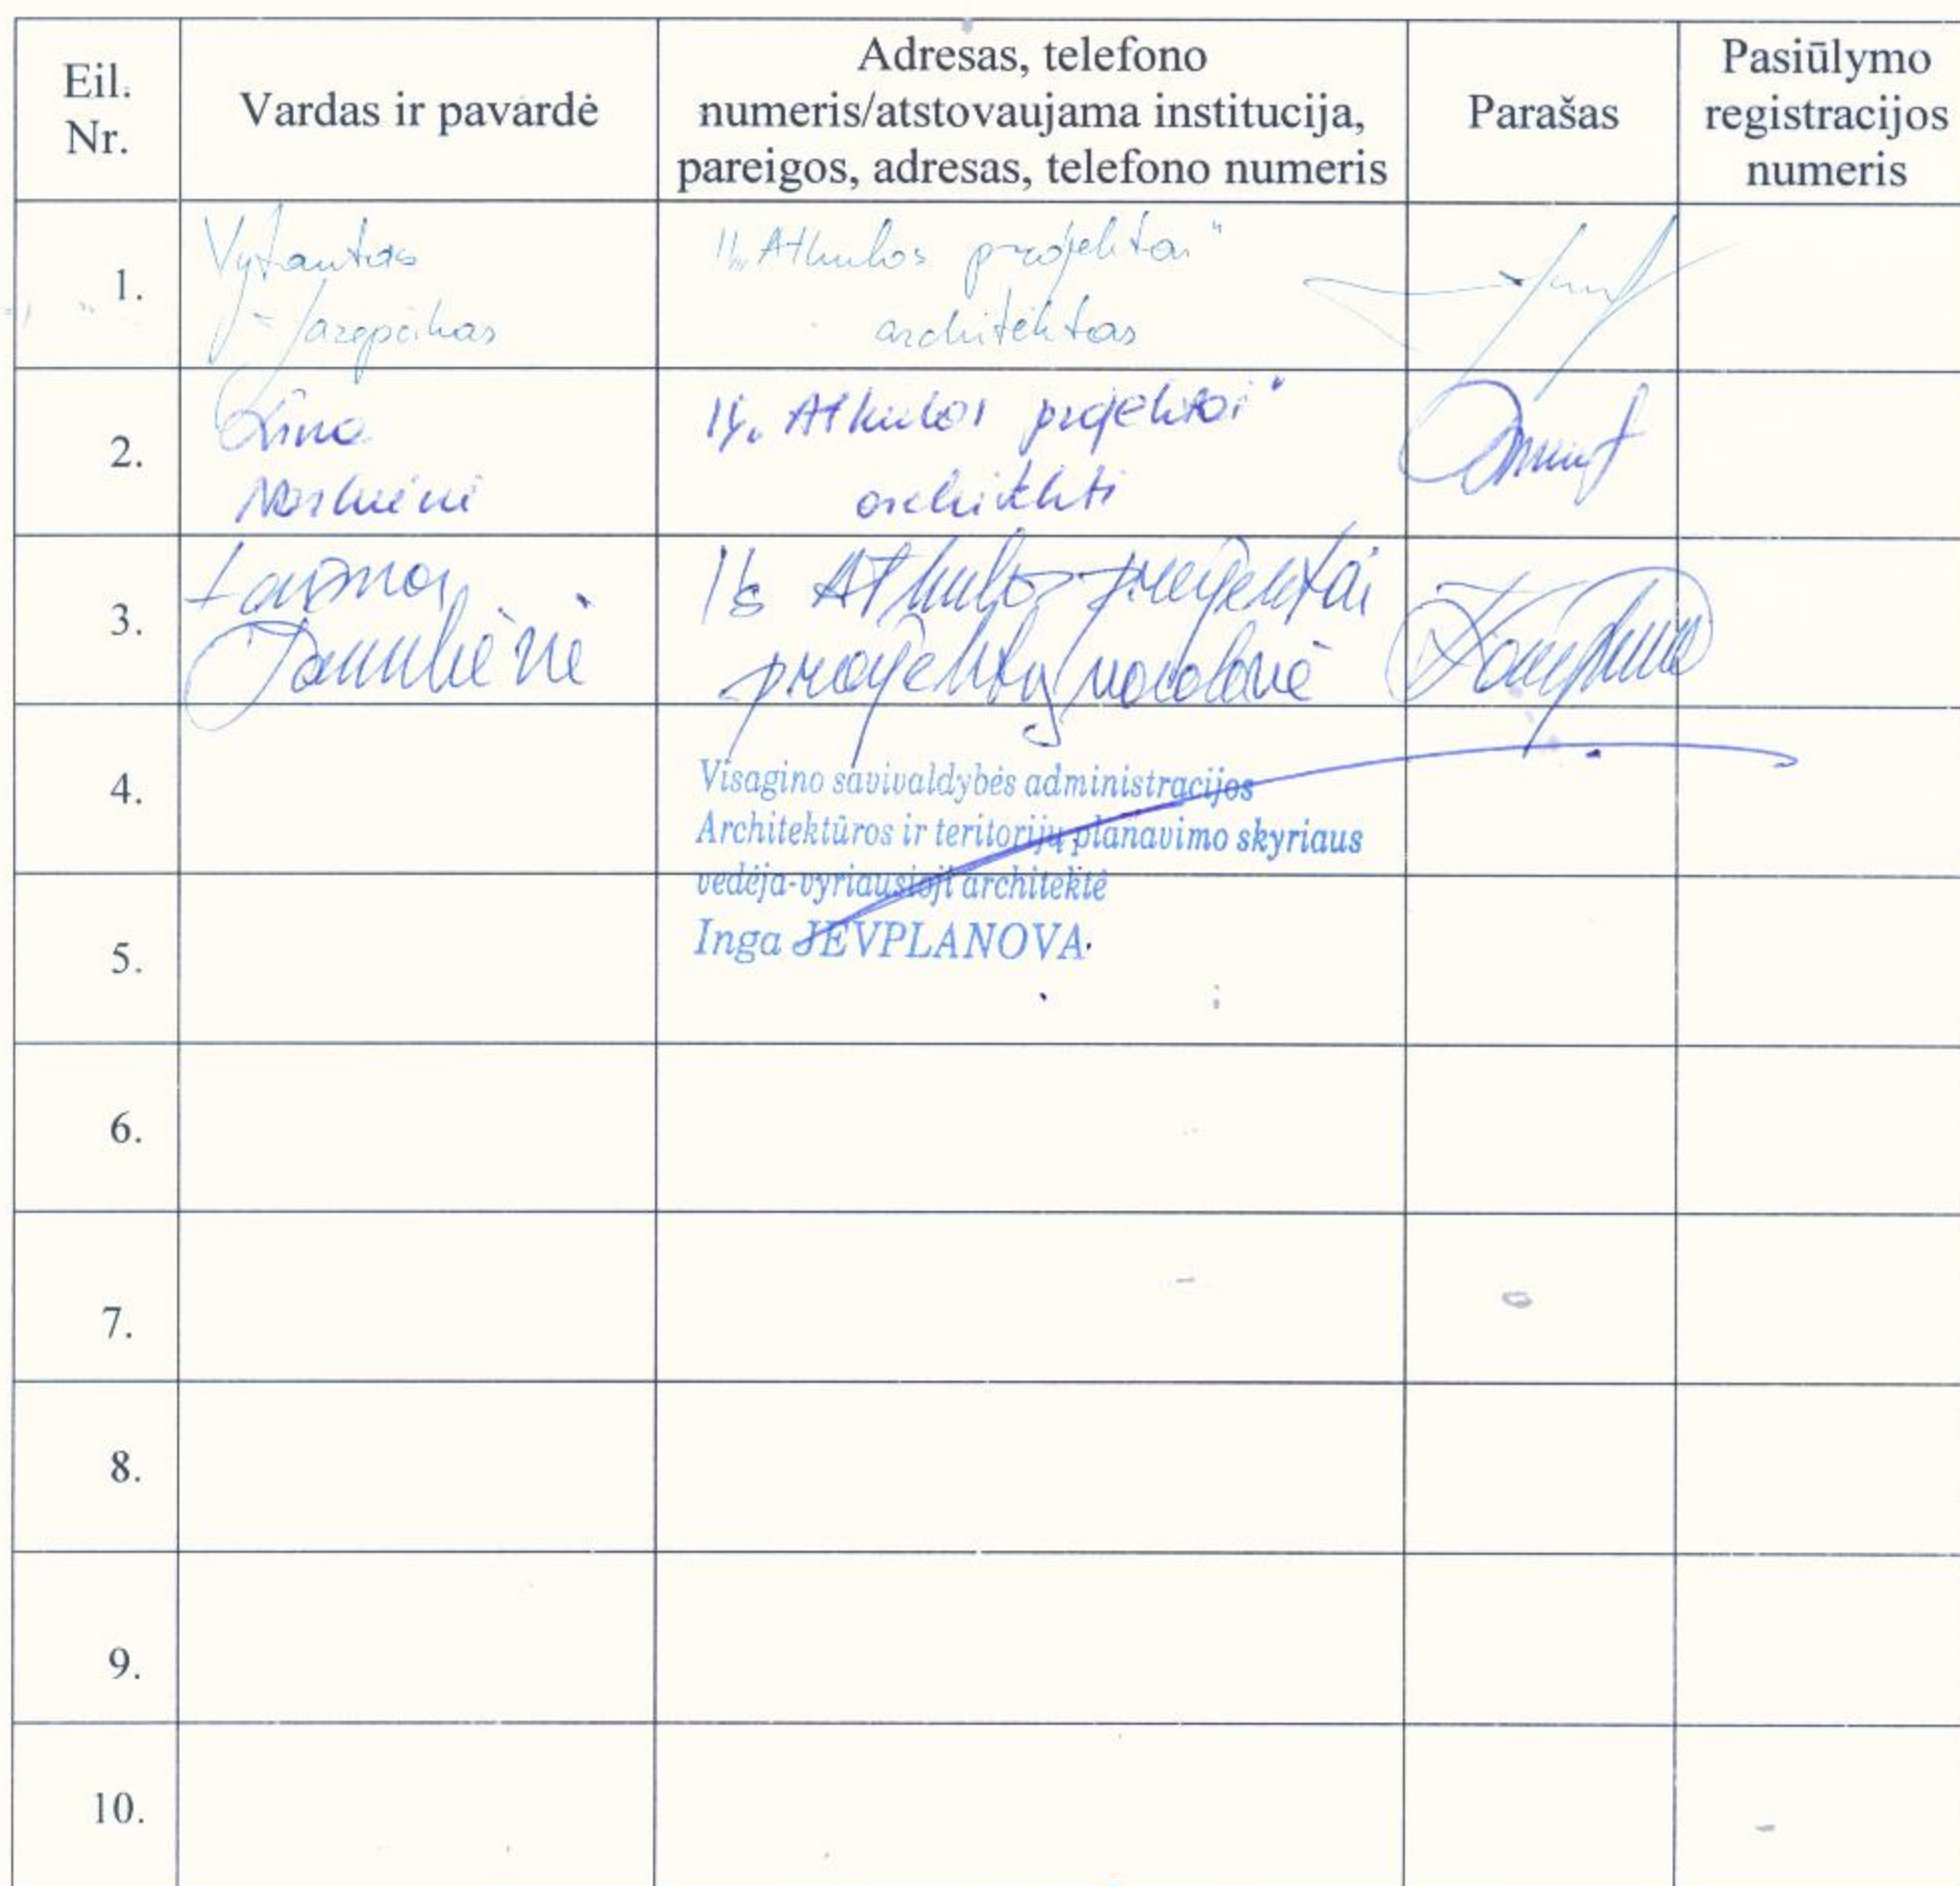 Eil.
Nr.
Vardas ir pavardė
Adresas, telefono
numeris/atstovaujama institucija,
pareigos, adresas, telefono numeris
Parašas
Pasiūlymo
registracijos
numeris
1.
Vytautas
"Atkulos projektai"
architektas
2.
Lina
„Atkulos projektai"
architektė
3.
Laima
Atkulos projektai
projektų vadovė
4.
Visagino savivaldybės administracijos
Architektūros ir teritorijų planavimo skyriaus
vedėja-vyriausioji architektė
Inga JEVPLANOVA
5.
6.
7.
8.
9.
10.